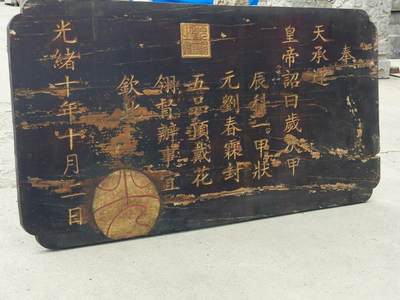 奉
天承運
皇帝詔曰歲次甲
辰科一甲狀
元劉春霖封
五品頂戴花
翎督辦事宜
欽此
光緒十年十月二日